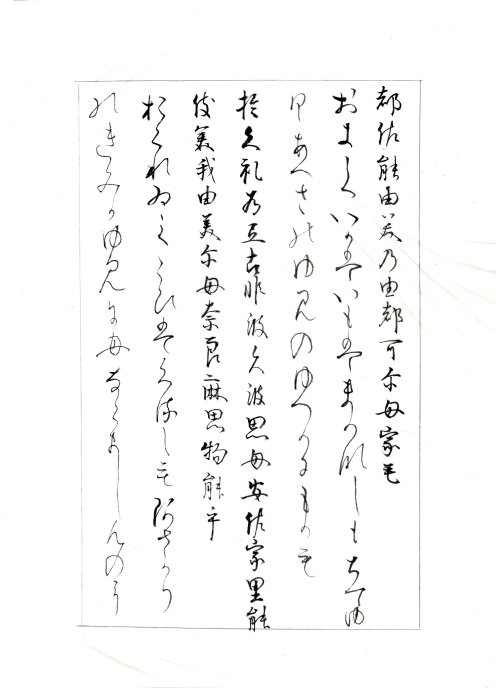 都佐能由美乃由都可尓母家毛
おきていかはいもはまかなしもちてゆ
くあつさのゆみのゆつかにもかも
於久礼為弖古非波久流思母安佐家里能
伎美我由美尓母奈良麻思物能乎
おくれゐてこひはくるしもあさかり
のきみかゆみにもならましものを